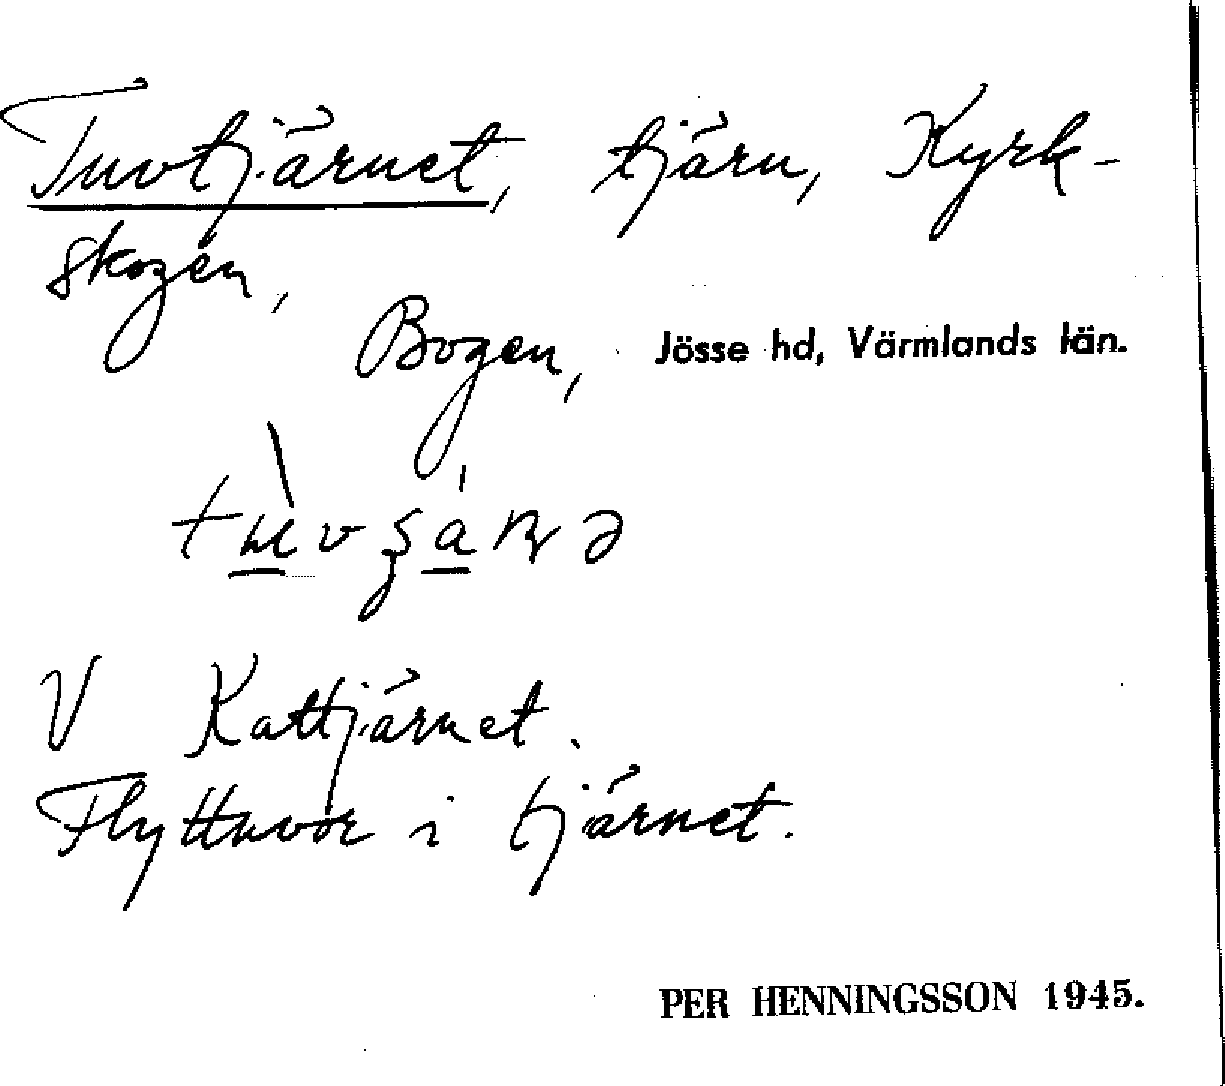 Tuvtjärnet, tjärn, Kyrk-
skogen,
Bogen, Jösse hd, Värmlands län.
V Kattjärnet.
Flyttuvor i tjärnet.
PER HENNINGSSON 1945.